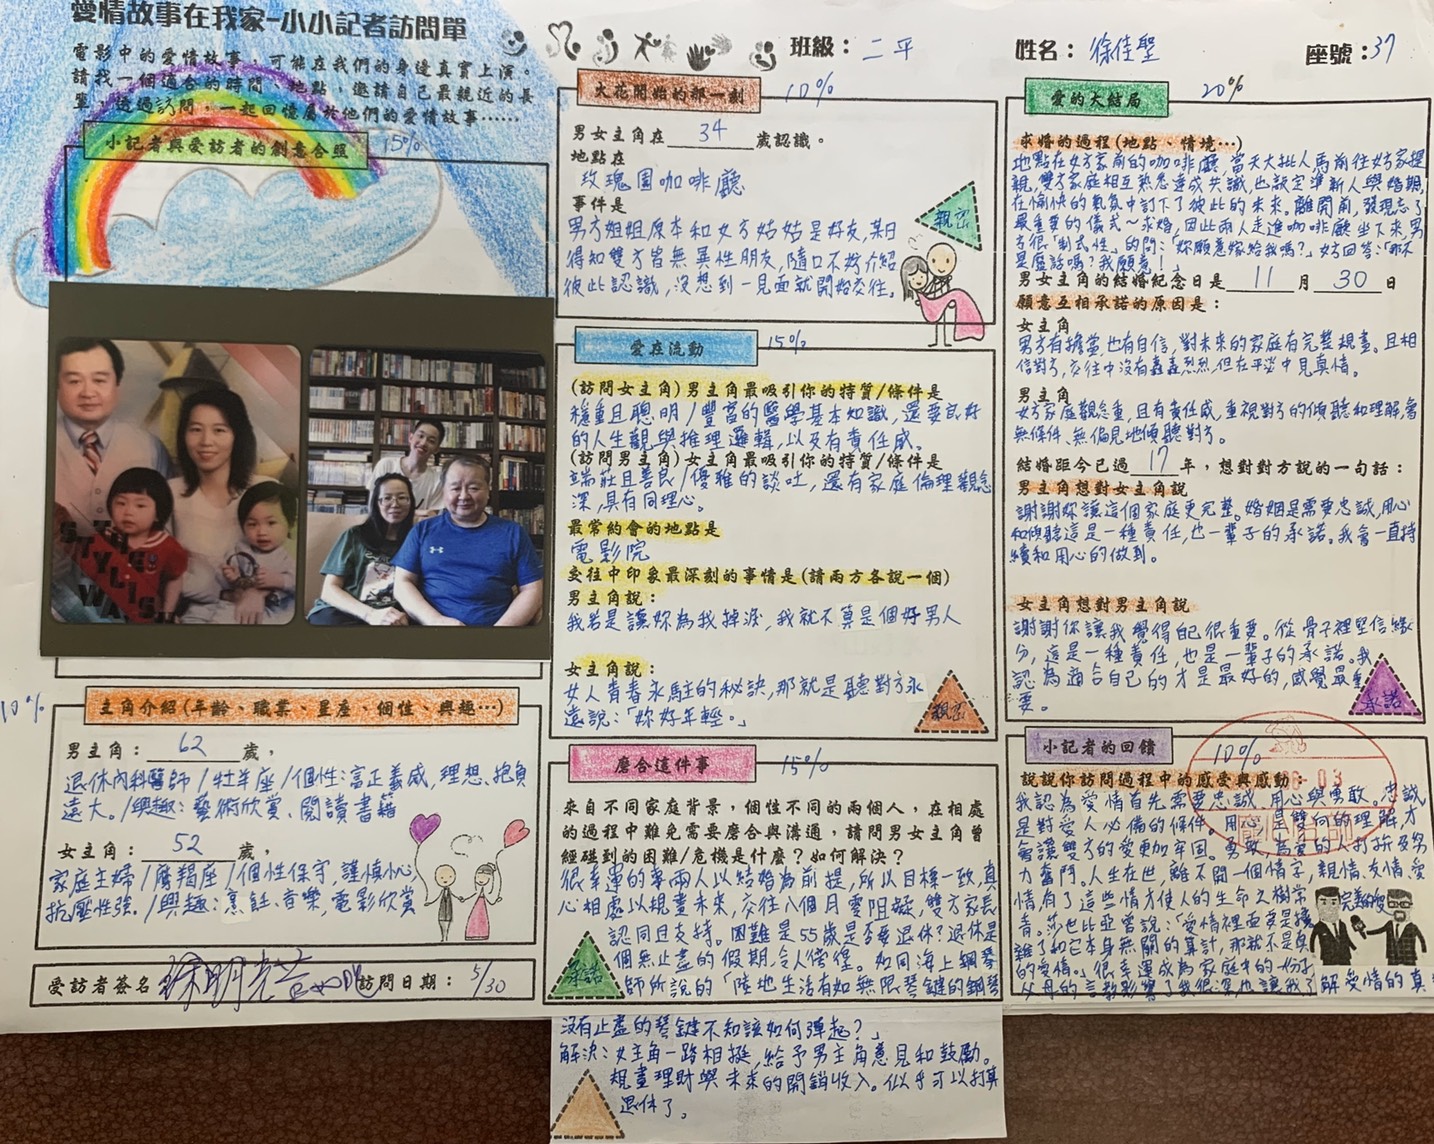 愛情故事在我家-小小記者訪問單
電影中的愛情故事，可能在我們的身邊真實上演。
請找一個適合的時間、地點，邀請自己最親近的長
輩，透過訪問，一起回憶屬於他們的愛情故事……
小記者與受訪者的創意合照 15%
10%
主角介紹(年齡、職業、星座、個性、興趣…)
男主角：62歲，
退休內科醫師/牡羊座/個性:富正義感,理想、抱負
遠大。/興趣:藝術欣賞、閱讀書籍
女主角：52歲，
家庭主婦/魔羯座/個性保守,謹慎小心
抗壓性強./興趣:烹飪、音樂,電影欣賞
受訪者簽名 訪問日期：5/30
班級：二平
姓名：徐佳聖
座號：37
火花開始的那一刻 10%
男女主角在34歲認識。
地點在
玫瑰園咖啡廳
事件是
男方姐姐原本和女方姑姑是好友,某日
得知雙方皆無異性朋友,隨口不妨介紹
彼此認識,沒想到一見面就開始交往。
親密
愛在流動 15%
(訪問女主角)男主角最吸引你的特質/條件是
穩重且聰明/豐富的醫學基本知識,還要良好
的人生觀與推理邏輯,以及有責任感。
(訪問男主角)女主角最吸引你的特質/條件是
端莊且善良/優雅的談吐,還有家庭倫理觀念
深,具有同理心。
最常約會的地點是
電影院
交往中印象最深刻的事情是(請兩方各說一個)
男主角說：
我若是讓妳為我掉淚,我就不算是個好男人
女主角說：
女人青春永駐的秘訣,那就是聽對方永
遠說:「妳好年輕。」
親密
磨合這件事 15%
來自不同家庭背景，個性不同的兩個人，在相處
的過程中難免需要磨合與溝通，請問男女主角曾
經碰到的困難/危機是什麼？如何解決？
很幸運的事兩人以結婚為前提,所以目標一致,真
心相處以規畫未來,交往八個月零阻礙,雙方家長
認同且支持。困難是55歲是否要退休?退休是
個無止盡的假期,令人徬徨。如同海上鋼琴
師所說的「陸地生活有如無限琴鍵的鋼琴
承諾
沒有止盡的琴鍵不知該如何彈起?」
解決:女主角一路相挺,給予男主角意見和鼓勵。
規畫理財與未來的開銷收入。似乎可以打算
退休了。
愛的大結局 20%
求婚的過程(地點、情境…)
地點在女方家前的咖啡廳,當天大批人馬前往女方家提
親,雙方家庭相互熟悉達成共識,也敲定準新人與婚期,
在愉快的氣氛中訂下了彼此的未來。離開前,發現忘了
最重要的儀式~求婚,因此兩人走進咖啡廳坐下來,男
方很「制式性」的問:「妳願意嫁給我嗎?」女方回答:「那不
是廢話嗎?我願意!」
男女主角的結婚紀念日是11月30日
願意互相承諾的原因是：
女主角
男方有擔當,也有自信,對未來的家庭有完整規畫。且相
信對方,交往中沒有轟轟烈烈,但在平淡中見真情。
男主角
女方家庭觀念重,且有責任感,重視對方的傾聽和理解,會
無條件、無偏見地傾聽對方。
結婚距今已過17年，想對對方說的一句話：
男主角想對女主角說
謝謝妳讓這個家庭更完整。婚姻是需要忠誠,用心
和傾聽這是一種責任,也一輩子的承諾。我會一直持
續和用心的做到。
女主角想對男主角說
謝謝你讓我覺得自己很重要。從骨子裡堅信緣
分,這是一種責任,也是一輩子的承諾。我
認為適合自己的才是最好的,感覺最重
要。
承諾
小記者的回饋 10%
說說你訪問過程中的感受與感動：
我認為愛情首先需要忠誠、用心與勇敢。忠誠
是對愛人必備的條件。用心是雙向的理解,才
會讓雙方的愛更加牢固。勇敢,為愛的人打拚及努
力奮鬥。人生在世,離不開一個情字,親情、友情、愛
情,有了這些情才使人的生命之樹常
青。莎士比亞曾說:「愛情裡面要是攙
雜了和它本身無關的算計,那就不是真
的愛情。」很幸運成為家庭中的一份子
父母的言教影響了我很深,也讓我了解愛情的真